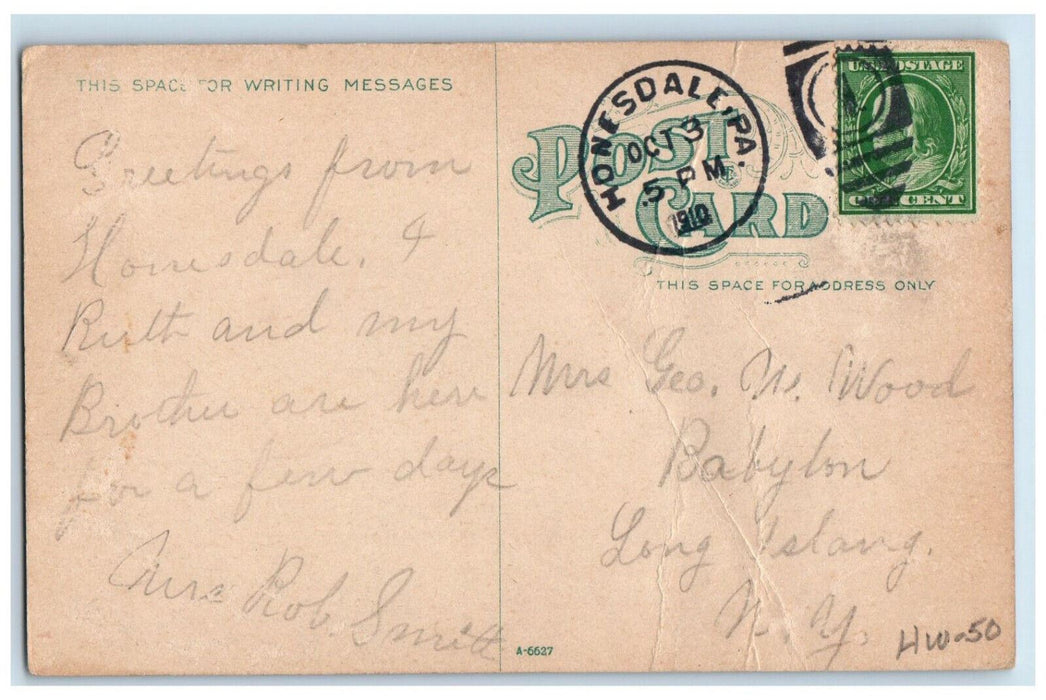 THIS SPACE FOR WRITING MESSAGES
Greetings from
Honesdale. &
Ruth and my
Brother are here
for a few days
Mrs Rob. Smith
HONESDALE, PA.
OCT 3
5 PM
1910
U.S. POSTAGE
CENT
POST CARD
THIS SPACE FOR ADDRESS ONLY
Mrs Geo. W. Wood
Babylon
Long Island.
N. Y.
A-6627
HW-50